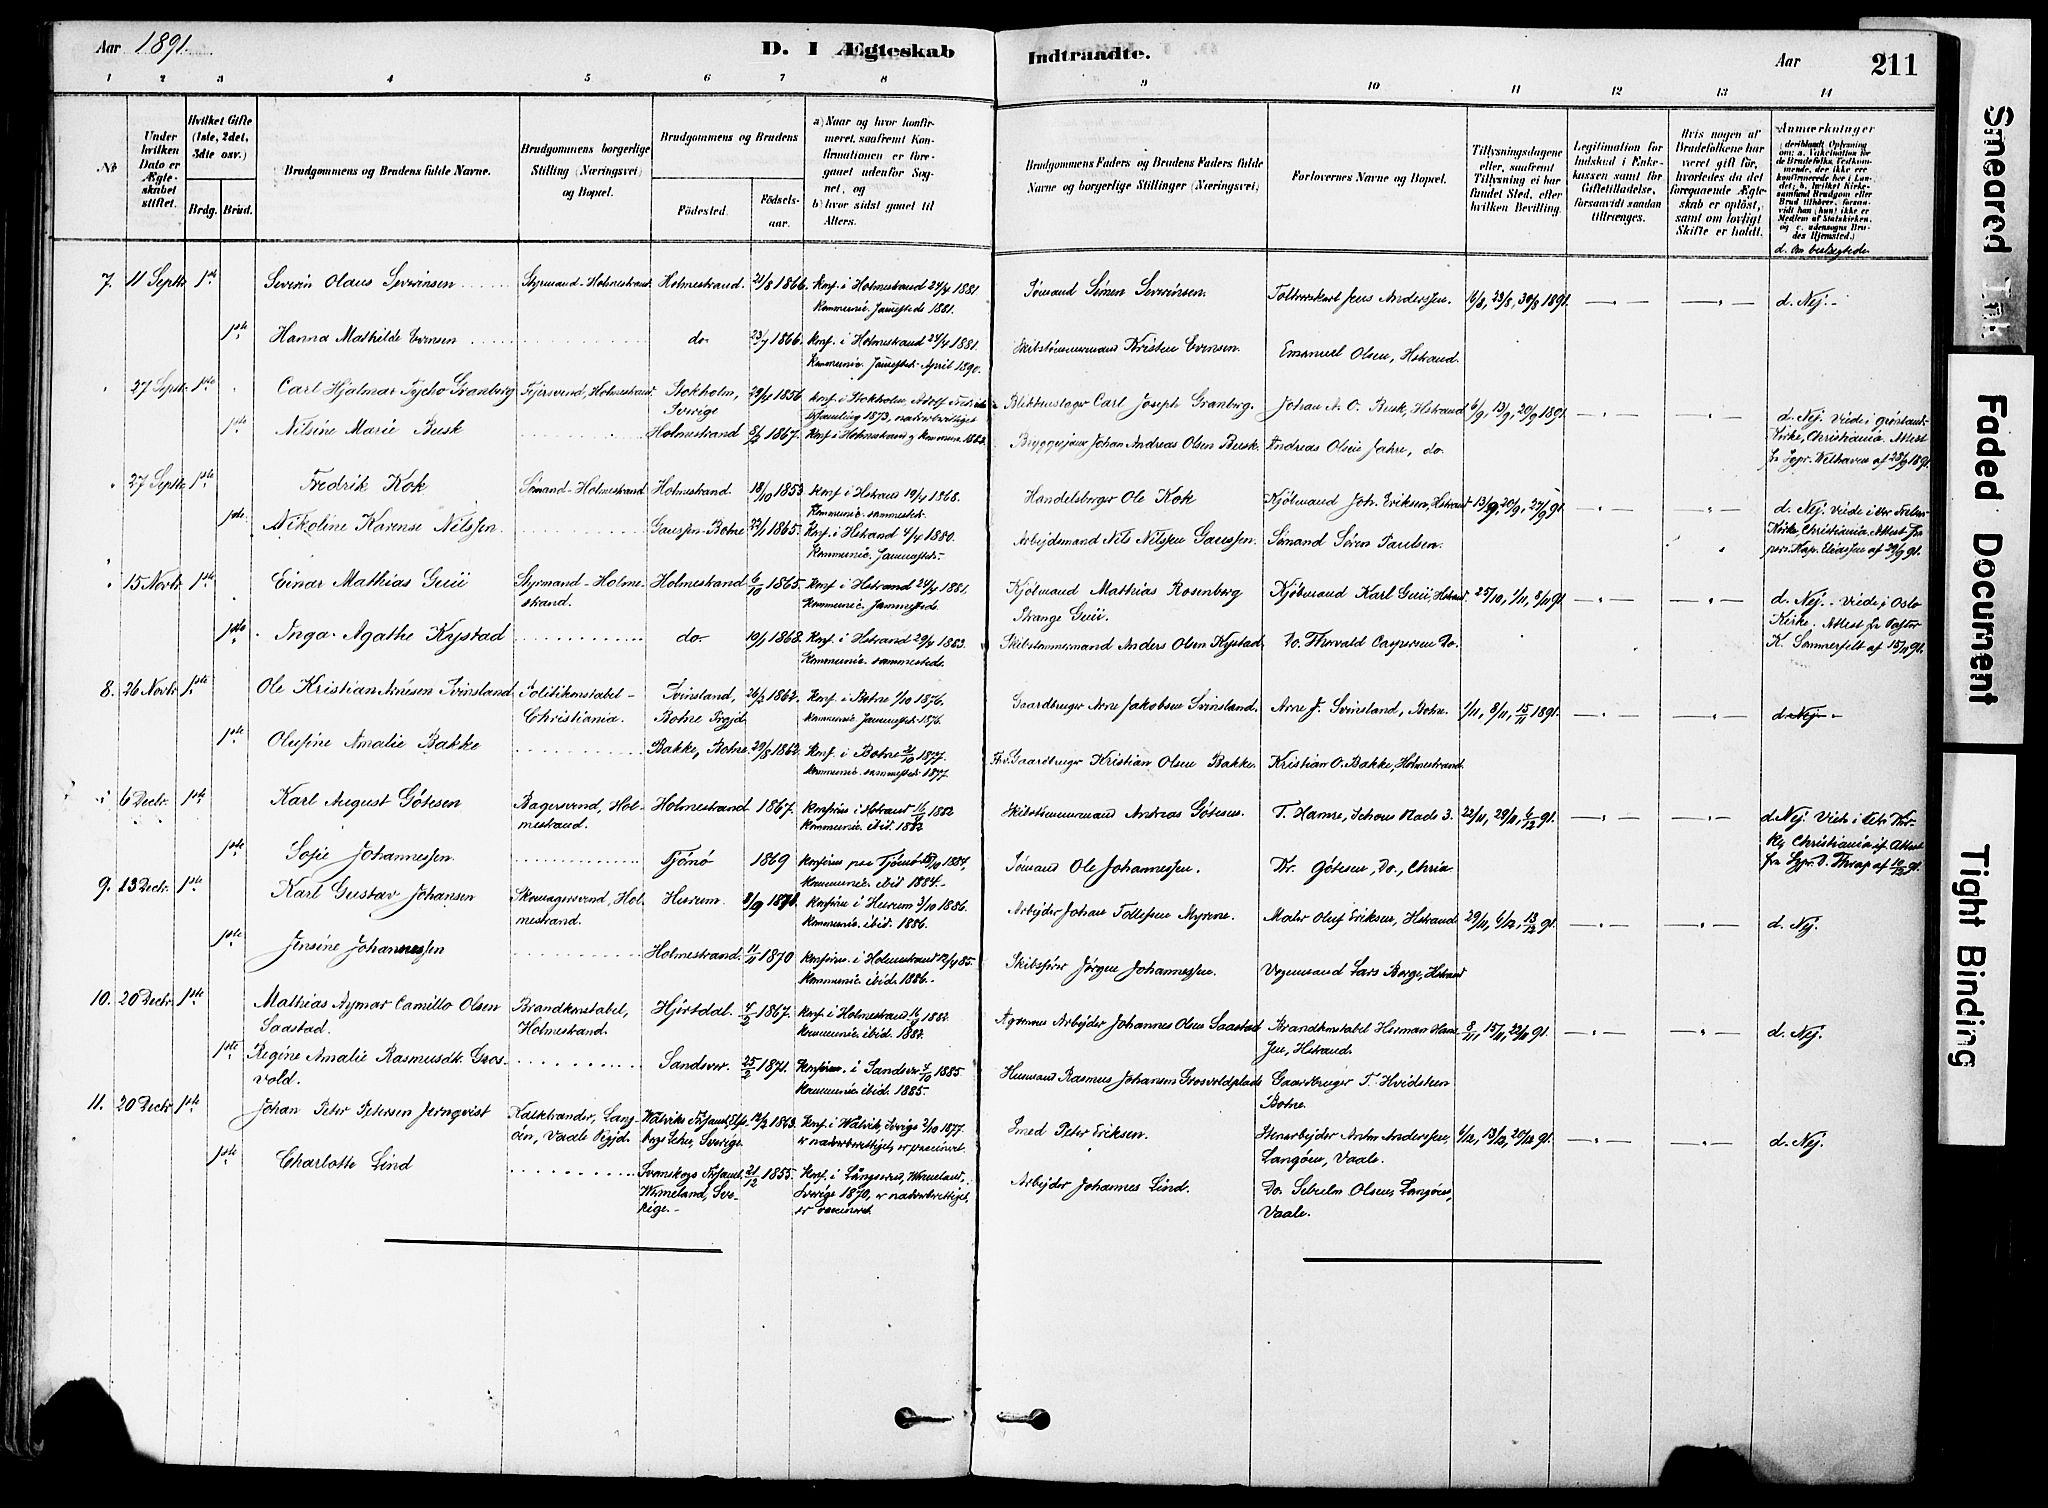 Aar 1891.
D. I Ægteskab
Indtraadte.
Aar
211
1 2 3 4 5 6 7 8 9 10 11 12 13 14
No
Under hvilken Dato er Ægteskabet stiftet.
Hvilket Gifte (1ste, 2det, 3dte osv.)
Brdg. Brud.
Brudgommens og Brudens fulde Navne.
Brudgommens borgerlige Stilling (Næringsvei) og Bopæl.
Brudgommens og Brudens
Fødested.
Fødselsaar.
a) Naar og hvor konfirmeret, saafremt Konfirmationen er foregaaet udenfor Sognet, og
b) hvor sidst gaaet til Alters.
Brudgommens Faders og Brudens Faders fulde Navne og borgerlige Stillinger (Næringsvei).
Forlovernes Navne og Bopæl.
Tillysningsdagene eller, saafremt Tillysning ei har fundet Sted, efter hvilken Bevilling.
Legitimation for Indskud i Enkekassen samt for Giftetilladelse, forsaavidt saadan tiltrænges.
Hvis nogen af Brudefolkene har været gift før, hvorledes da det foregaaende Ægteskab er opløst, samt om lovligt Skifte er holdt.
Anmærkninger
d. Om beslægtede
7. 11 Septbr 1ste Severin Olaus Severinsen Styrmand - Holmestrand Holmestrand 21/8 1866 Konf. i Holmestrand 24/4 1881. Kommunic. sammesteds 1881. Sømand Simen Severinsen. Toldoverskart Jens Anderssen. 16/8, 23/8, 30/8 1891. d. Nej.
1ste Hanna Mathilde Evensen do. 23/7 1866. Konf. i Holmestrand 24/4 1881 Kommunic. sammesteds April 1890. Skibstømmermand Kristen Evensen. Emanuel Olsen, Hstrand.
27 Septr 1ste Carl Hjalmar Tycho Granberg Fejersvend, Holmestrand Stokholm, Sverige 29/4 1856 Konf. i Stokholm, Adolf Fredriks 1873, Blikkenslager Carl Joseph Granberg. Johan A. O. Busk, Hstrand 6/9, 13/9, 20/9 1891. d. Nej. Viede i Grønlands Kirke, Christiania. Attest fr Sgpr. Welhaven af 28/9 1891.
1ste Nilsine Marie Busk Holmestrand 8/9 1867. Konf. i Holmestrand og kommun. 1883. Bryggesjouer Johan Andreas Olsen Busk. Andreas Olsen Jahre, do.
27 Septbr 1ste Fredrik Kok Sømand - Holmestrand Holmestrand. 18/10 1853 Konf. i Hstrand 19/4 1868. Kommunic. sammested. Handelsborger Ole Kok Kjøbmand Joh. Eriksen, Hstrand 13/9, 20/9, 27/9 91. d. Nej.
1ste Nikoline Karense Nilssen. Gaussen - Botne 22/1 1865. Konf. i Hstrand 4/4 1880. Kommunic. sammesteds. Arbejdsmand Nels Nilssen Gaussen. Sømand Søren Paulsen.
15 Novbr 1ste Einar Mathias Guii Styrmand - Holmestrand. Holmestrand 6/10 1865. Konf. i Hstrand 24/4 1881. Kommunic. sammesteds. Kjøbmand Mathias Rosenberg Strange Guii. Kjøbmand Karl Guii, Hstrand. 25/10, 1/11, 8/11 91. d. Nej. Viede i Oslo Kirke. Attest fr Pastor K. Sommerfelt af 15/11 91.
1ste Inga Agathe Kystad do. 19/1 1868. Konf. i Hstrand 29/4 1883. Kommunic. sammesteds. Skibstømmermand Anders Olsen Kystad. Do. Thorvald Caspersen Do.
8. 26 Novbr. 1ste Ole Kristian Arnesen Svinsland Politikonstabel - Christiania. Svinsland, Botne Prgjd. 26/2 1862. Konf. i Botne 1/10 1876, Kommunic. sammested. 1876. Gaardbruger Arne Jakobsen Svinsland. Arne J. Svinsland, Botne. 1/11, 8/11, 15/11 1891. d. Nej.
1ste Olusine Amalie Bakke Bakke, Botne. 29/8 1862. Konf. i Botne 21/10 1877. Kommunic. sammested 1877 Gaardbruger Kristian Olsen Bakke. Kristian O. Bakke, Holmestrand
6 Decbr. 1ste Karl August Gøtesen Bagersvend, Holmestrand. Holmestrand 1867. Konfirm. i Hstrand 16/4 1882 Kommunic. ibid. 1882 Skibstømmermand Andreas Gøtesen. T. Hamre, Schous Gade 3. 22/11, 29/11, 6/12 91.
1ste Sofie Johannessen. Tjømø 1869 Konfirm. paa Tjømø 1884, Kommunic. ibid 1884. Sømand Ole Johannessen. Th. Gøtesen, Do., Chria.
9. 13 Decbr. 1ste Karl Gustav Johansen Skomagersvend, Holmestrand. Hurum. 8/9 1871. Konfirm. i Hurum 3/10 1886. Kommunic. ibid. 1886. Arbejder Johan Tollefsen Myrene. Maler Oluf Eriksen, Hstrand 29/11, 6/12, 13/12 91. d. Nej.
1ste Jensine Johannessen Holmestrand. 11/11 1870 Konfirm. i Holmestrand 12/4 85. Kommunic. ibid. 1886. Skibsfører Jørgen Johannessen. Vognmand Lars Borge, Hstrand
10. 20 Decbr. 1ste Mathias Aymar Camillo Olsen Saastad. Brandkonstabel, Holmestrand. Hjertdal. 4/2 1867. Konf. i Holmestrand 16/4 1882. Kommunic. ibid. 1882. Arbejder Johannes Olsen Saastad Brandkonstabel Herman Hansen, Hstrand. 8/11, 15/11, 22/11 91. d. Nej.
1ste Regine Amalie Rasmusdt. Grosvold. Sandsver. 25/2 1871. Konfirm. i Sandsvr 4/10 1885. Kommunic. ibid. 1885. Husmand Rasmus Johansen Grosvoldplads Gaardbruger T. Hvidsten Botne.
11. 20 Decbr. 1ste Johan Peter Petersen Jernqvist Kalkbrænder, Langøen, Vaale Prgjd. Sverige. 1863. Konf. i Walvik, Sverige 2/10 1877. er naturberettiget, er vaccineret. Smed Peter Eriksen. Stenarbejder Anderssen, Langøen, Vaale. 6/12, 13/12, 20/12 91. d. Nej.
1ste Charlotte Lind Svanskogs Wermland, Sverige. 21/12 1855. Konf. i Långserud, Wermeland, Sverige 1870, er naturberettiget, er vaccineret. Arbejder Johannes Lind. Do. Olsen, Langøen, Vaale.
Smeared Tit.
Faded Document
Tight Binding